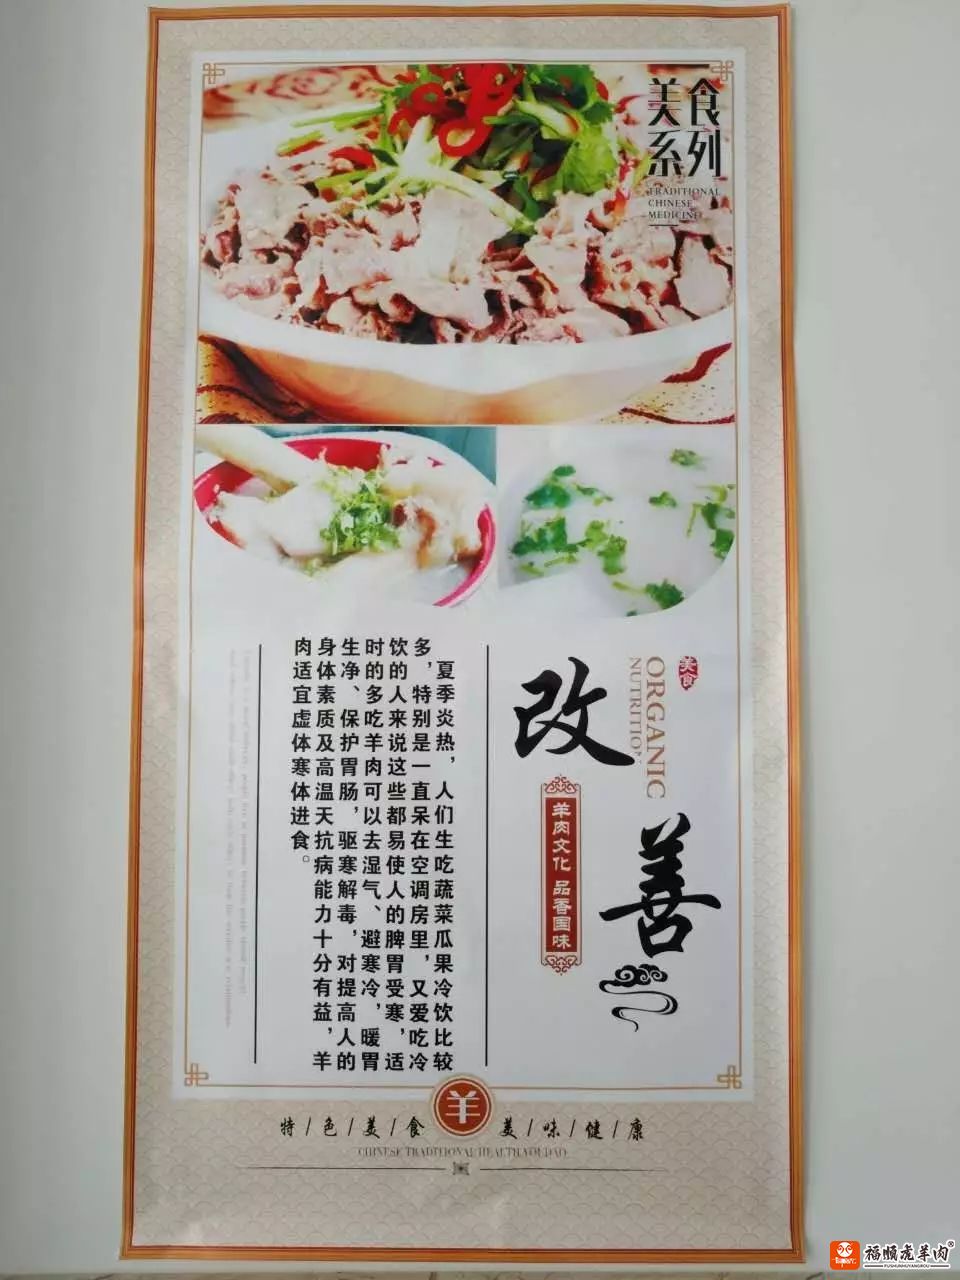 美食
系列
TRADITIONAL
CHINESE
MEDICINE
美食
ORGANIC
NUTRITION
改善
羊肉文化 品香国味
夏季炎热，人们生吃蔬菜瓜果冷饮比较
多，特别是一直呆在空调房里，又爱吃冷
饮的人来说这些都易使人的脾胃受寒，适
时的多吃羊肉可以去湿气、避寒冷，暖胃
生净、保护胃肠，驱寒解毒，对提高人的
身体素质及高温天抗病能力十分有益，羊
肉适宜虚体寒体进食。
羊
特/色/美/食 美/味/健/康
CHINESE TRADITIONAL HEALTH YOUDAO
福顺虎羊肉®
FUSHUNHUYANGROU